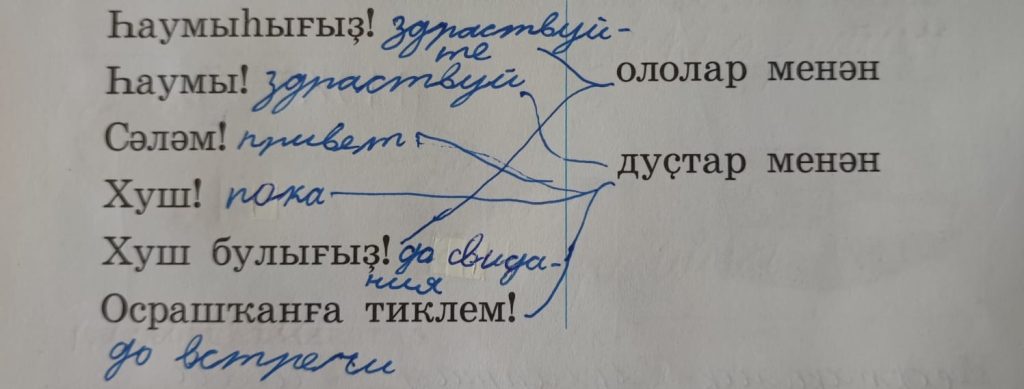 Һаумыһығыҙ! здраствуй-
те
ололар менән
Һаумы! здраствуй
Сәләм! привет
дуҫтар менән
Хуш! пока
Хуш булығыҙ! до свида-
ния
Осрашҡанға тиклем!
до встречи